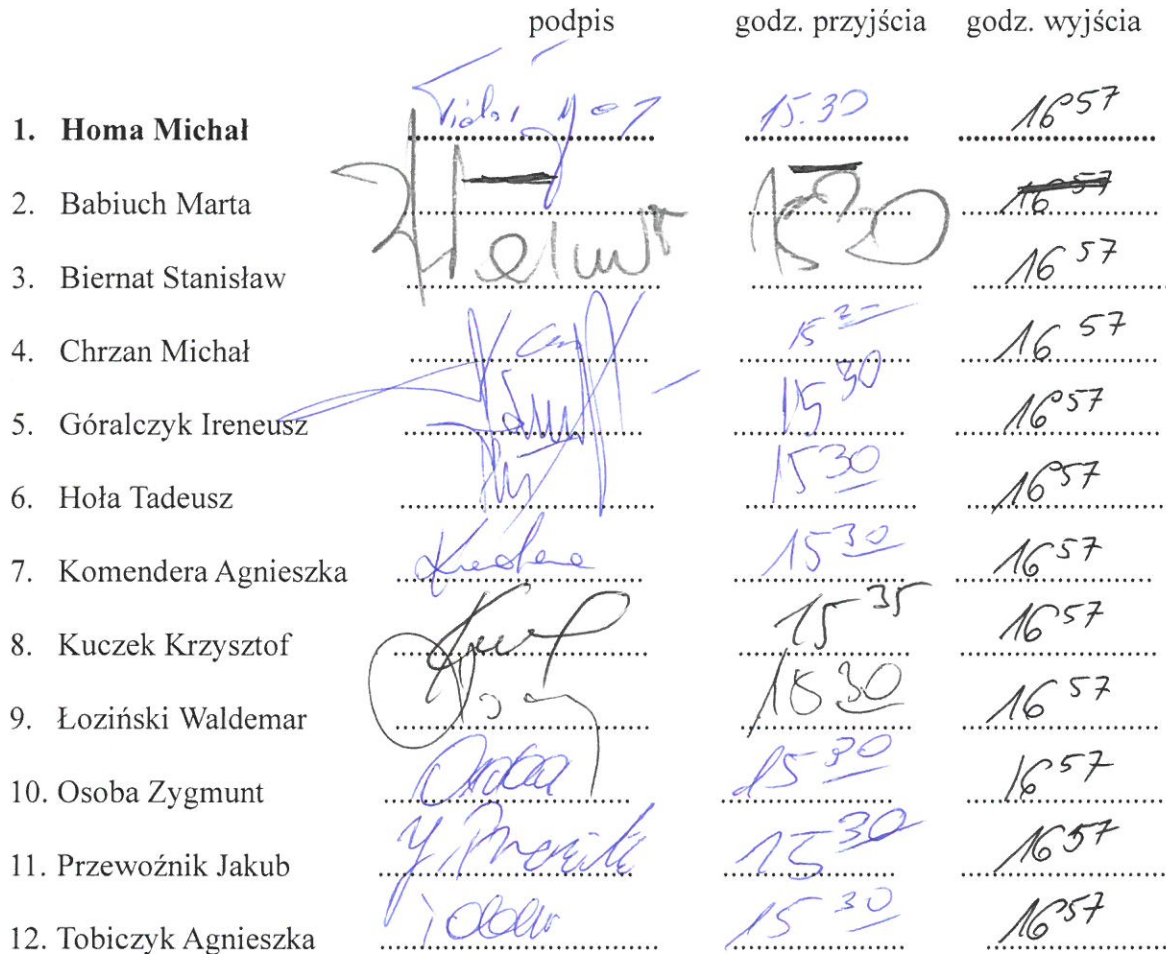 podpis godz. przyjścia godz. wyjścia
1. Homa Michał 15.30 16 57
2. Babiuch Marta 16 57
3. Biernat Stanisław 15 30 16 57
4. Chrzan Michał 16 57
5. Góralczyk Ireneusz 15 30 16 57
6. Hoła Tadeusz 15 30 16 57
7. Komendera Agnieszka 15 30 16 57
8. Kuczek Krzysztof 15 35 16 57
9. Łoziński Waldemar 15 30 16 57
10. Osoba Zygmunt Osoba 15 30 16 57
11. Przewoźnik Jakub 15 30 16 57
12. Tobiczyk Agnieszka 15 30 16 57